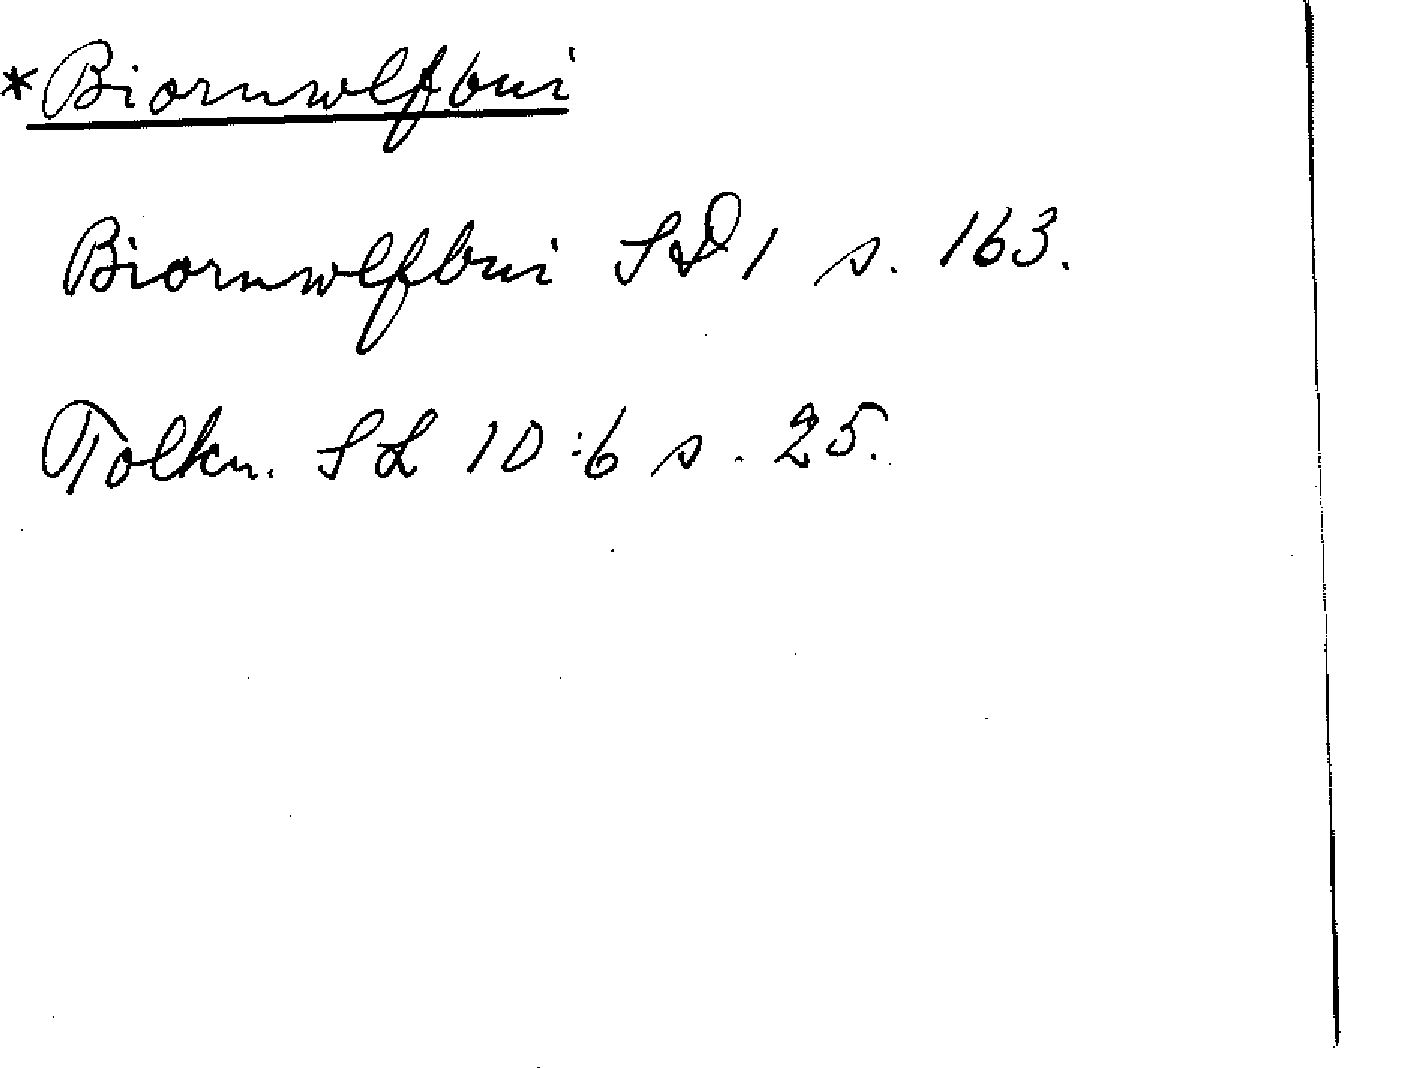 *Biornwlfbui
Biornwlfbui SD 1 s. 163.
Tolkn. SL 10:6 s. 25.